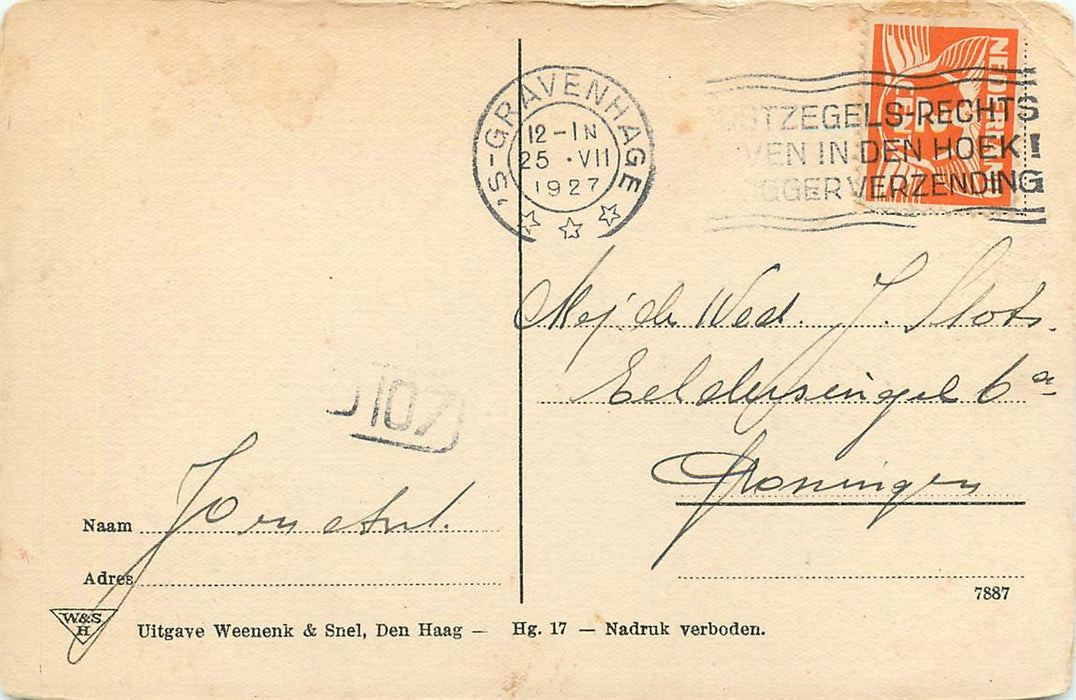 'S-GRAVENHAGE
12-1N
25 · VII
1927
TZEGELS-RECHTS
VEN IN DEN HOEK!
GGER VERZENDING
NEDERLAND
CENT
2
Mej. de Wed. J. Slots.
Eeldersingel 6a
Groningen
107
Naam
Adres
7887
W&S
H
Uitgave Weenenk & Snel, Den Haag — Hg. 17 — Nadruk verboden.